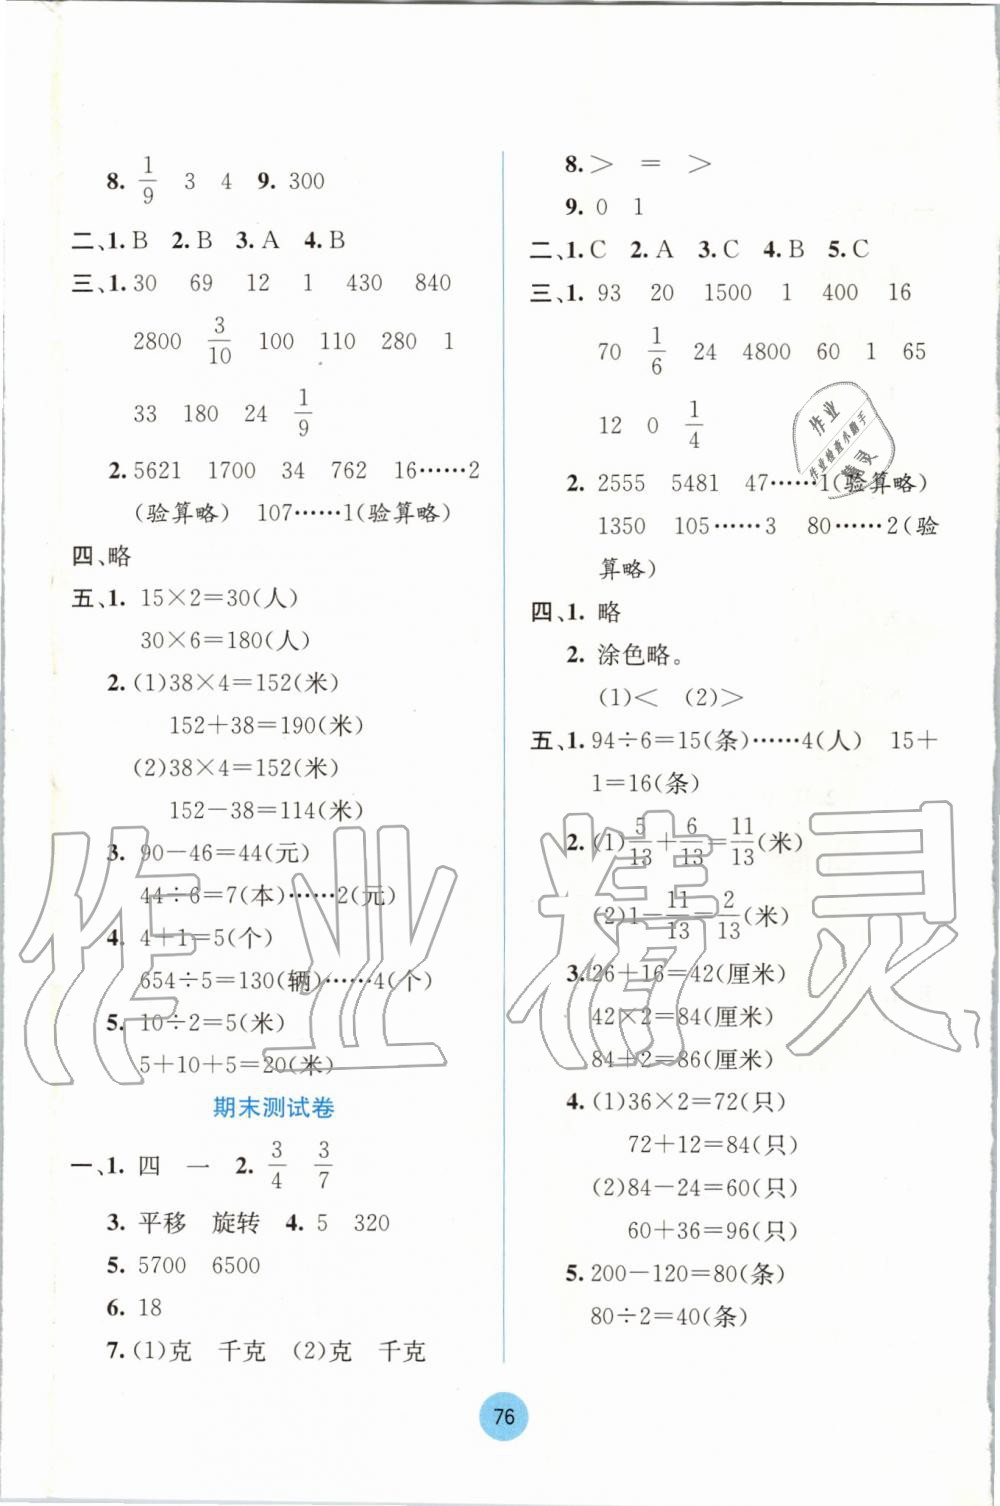 8. 1/9 3 4 9. 300
二、1. B 2. B 3. A 4. B
三、1. 30 69 12 1 430 840
2800 3/10 100 110 280 1
33 180 24 1/9
2. 5621 1700 34 762 16……2
(验算略) 107……1(验算略)
四、略
五、1. 15×2=30(人)
30×6=180(人)
2. (1)38×4=152(米)
152+38=190(米)
(2)38×4=152(米)
152-38=114(米)
3. 90-46=44(元)
44÷6=7(本)……2(元)
4. 4+1=5(个)
654÷5=130(辆)……4(个)
5. 10÷2=5(米)
5+10+5=20(米)
期末测试卷
一、1. 四 一 2. 3/4 3/7
3. 平移 旋转 4. 5 320
5. 5700 6500
6. 18
7. (1)克 千克 (2)克 千克
8. > = >
9. 0 1
二、1. C 2. A 3. C 4. B 5. C
三、1. 93 20 1500 1 400 16
70 1/6 24 4800 60 1 65
12 0 1/4
2. 2555 5481 47……1(验算略)
1350 105……3 80……2(验
算略)
四、1. 略
2. 涂色略。
(1)< (2)>
五、1. 94÷6=15(条)……4(人) 15+
1=16(条)
2. (1)5/13+6/13=11/13(米)
(2)1-11/13=2/13(米)
3. 26+16=42(厘米)
42×2=84(厘米)
84+2=86(厘米)
4. (1)36×2=72(只)
72+12=84(只)
(2)84-24=60(只)
60+36=96(只)
5. 200-120=80(条)
80÷2=40(条)
76
作业精灵
作业
作业检查小助手
精灵